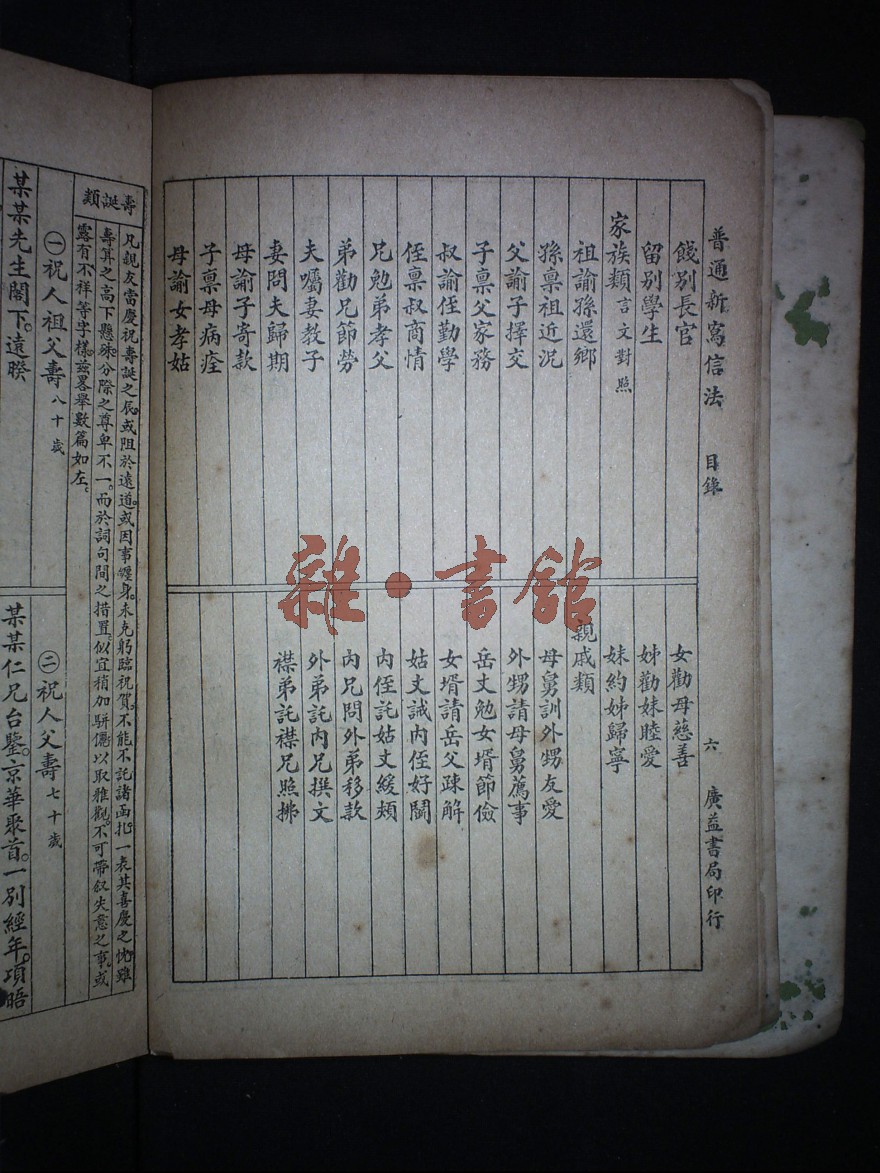 普通新寫信法 目錄 六 廣益書局印行
餞別長官
留別學生
家族類 言文對照
祖諭孫還鄉
孫稟祖近況
父諭子擇交
子稟父家務
叔諭侄勤學
侄稟叔商情
兄勉弟孝父
弟勸兄節勞
夫囑妻教子
妻問夫歸期
母諭子寄款
子稟母病痊
母諭女孝姑
女勸母慈善
姊勸妹睦愛
妹約姊歸寧
親戚類
母舅訓外甥友愛
外甥請母舅薦事
岳丈勉女壻節儉
女壻請岳父疎解
姑丈誡內侄好鬭
內侄託姑丈緩頰
內兄問外弟移款
外弟託內兄撰文
襟弟託襟兄照拂
雜·書館
壽誕類
凡親友當慶祝壽誕之辰。或阻於遠道。或因事纏身。未克躬臨祝賀。不能不託諸函札。一表其喜慶之忱。雖
壽算之高下懸殊。分際之尊卑不一。而於詞句間之措置。似宜稍加駢儷。以取雅觀。不可帶敘失意之事。或
露有不祥等字樣。茲畧舉數篇如左。
㊀祝人祖父壽 八十歲
某某先生閣下。遠暌
㊁祝人父壽 七十歲
某某仁兄台鑒。京華聚首。一別經年。項晤